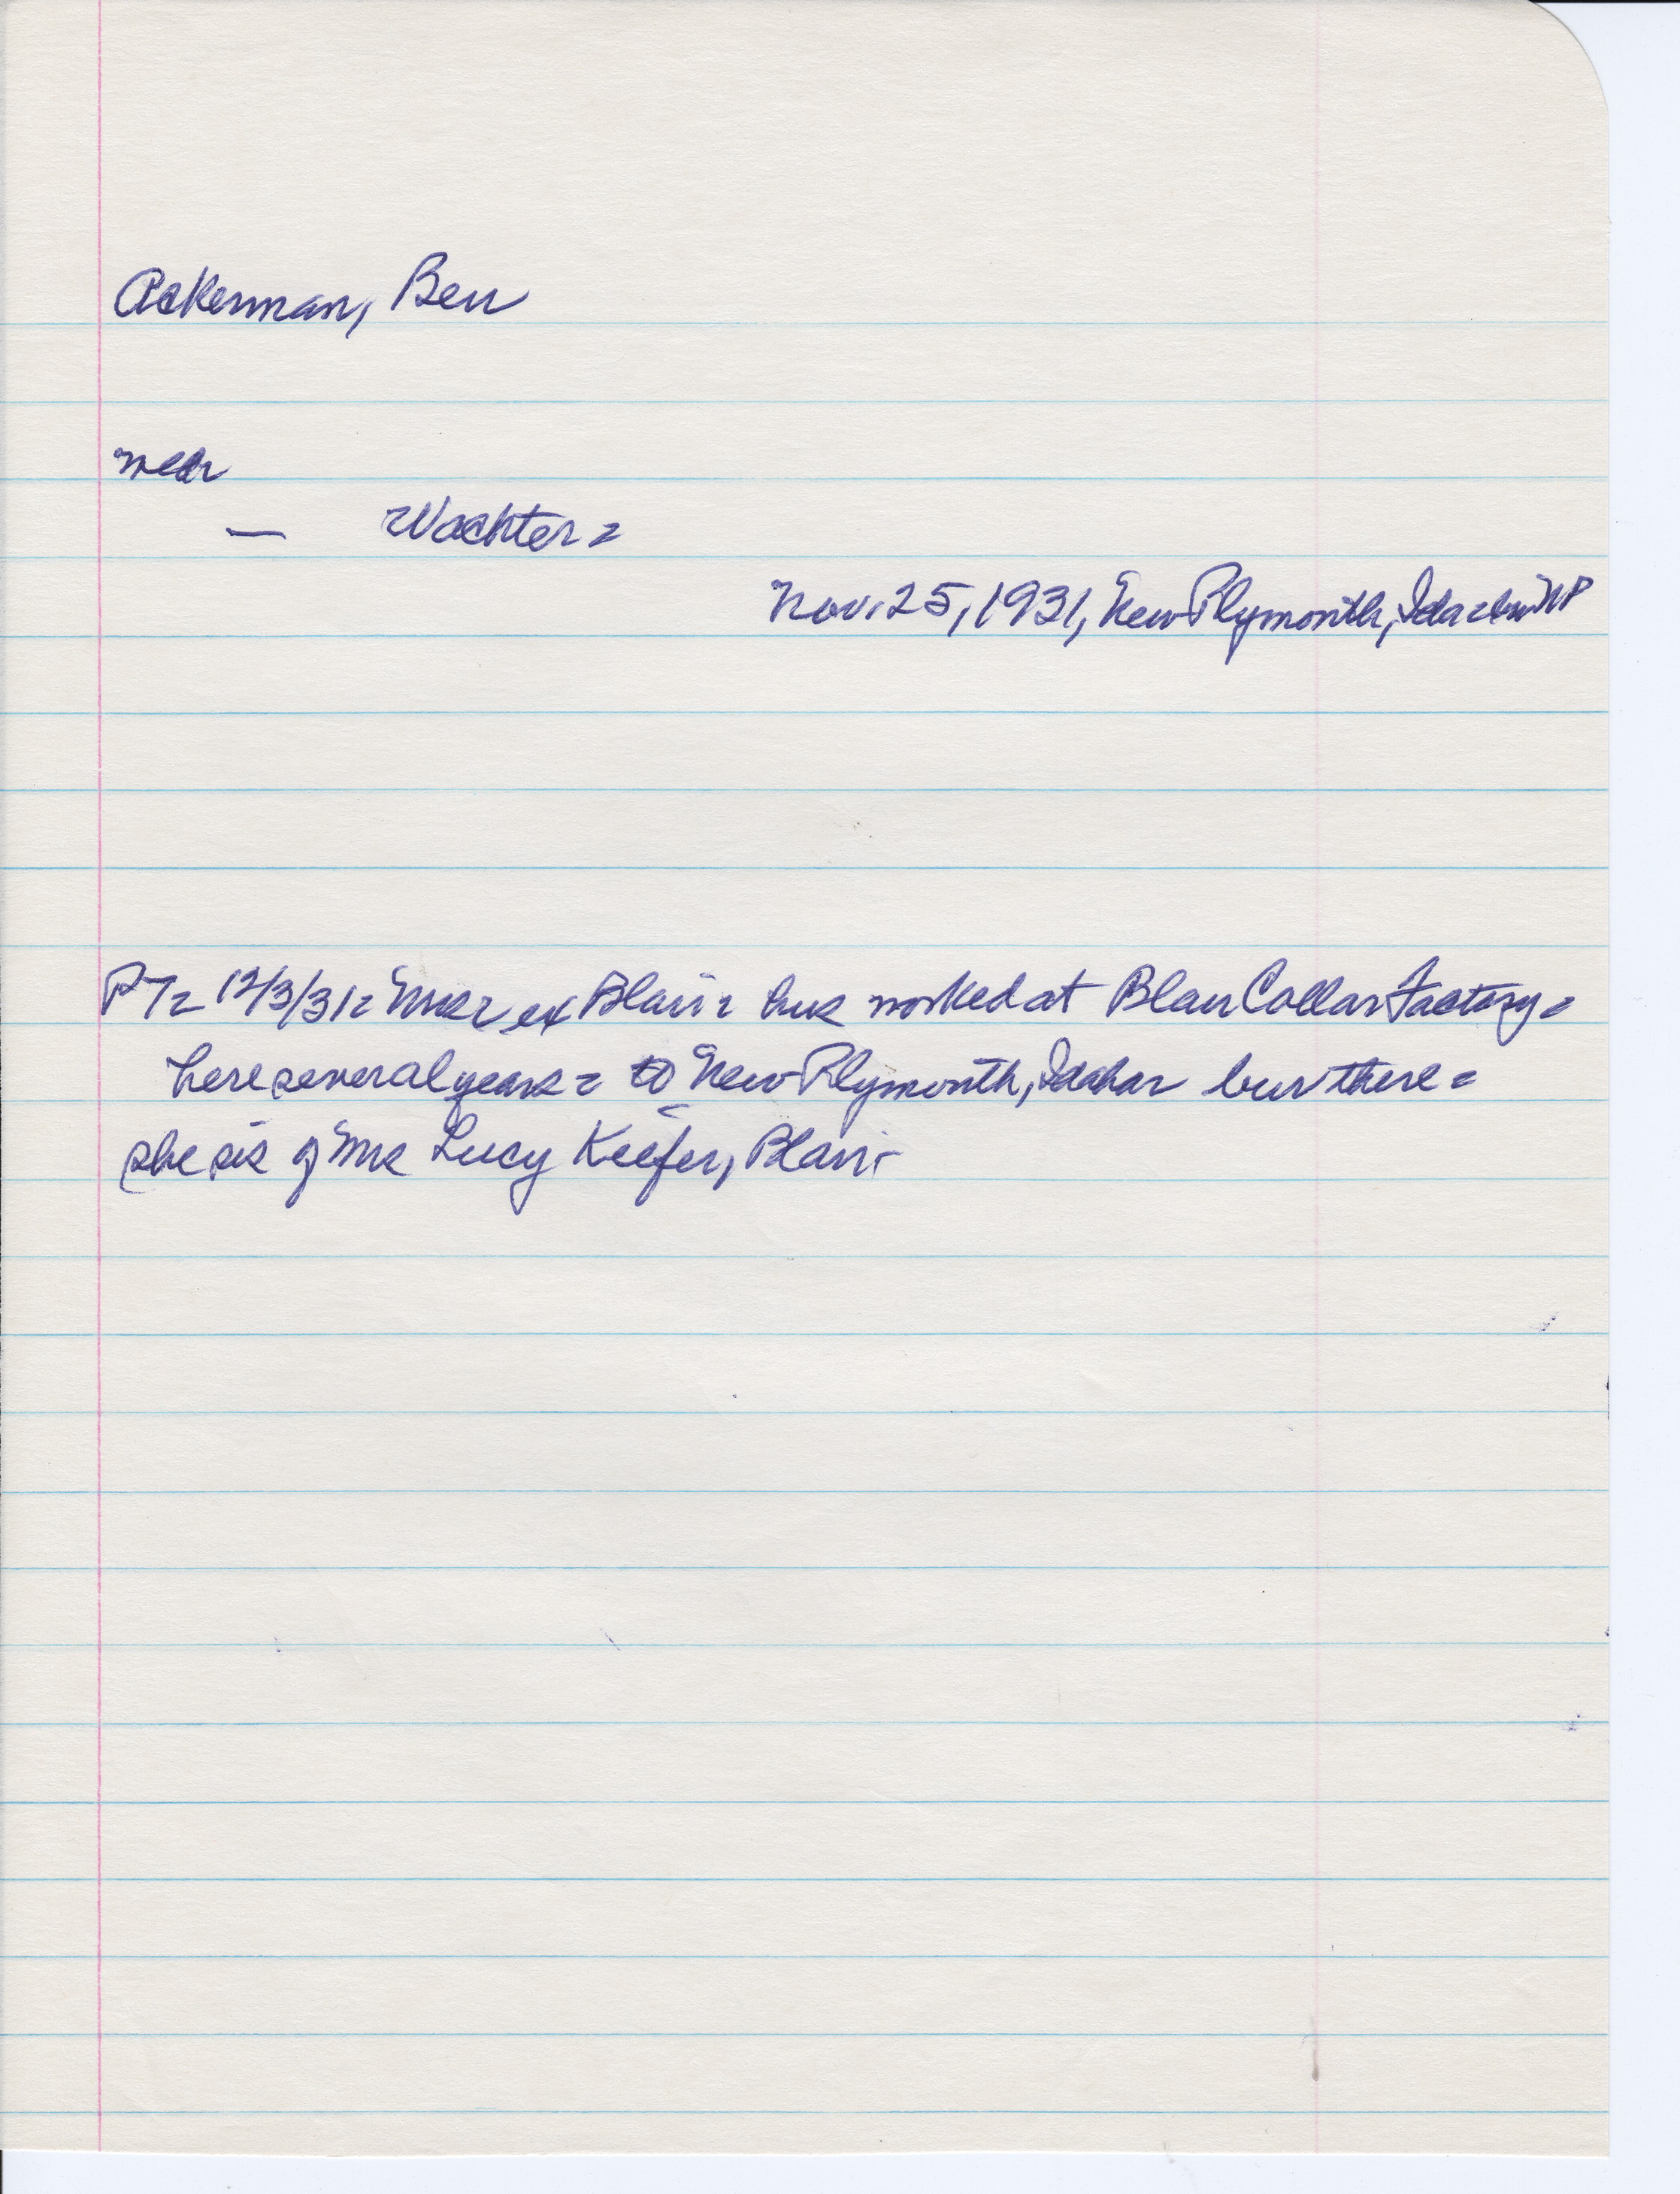 Ackerman, Ben
wed=
— Wachter=
Nov. 25, 1931, New Plymouth, Ida= bur NP
PT= 12/3/31= Mrs= ex Blair= hus worked at Blair Collar Factory=
here several years= to New Plymouth, Idaho= bur there=
she sis of Mrs Lucy Keefer, Blair-